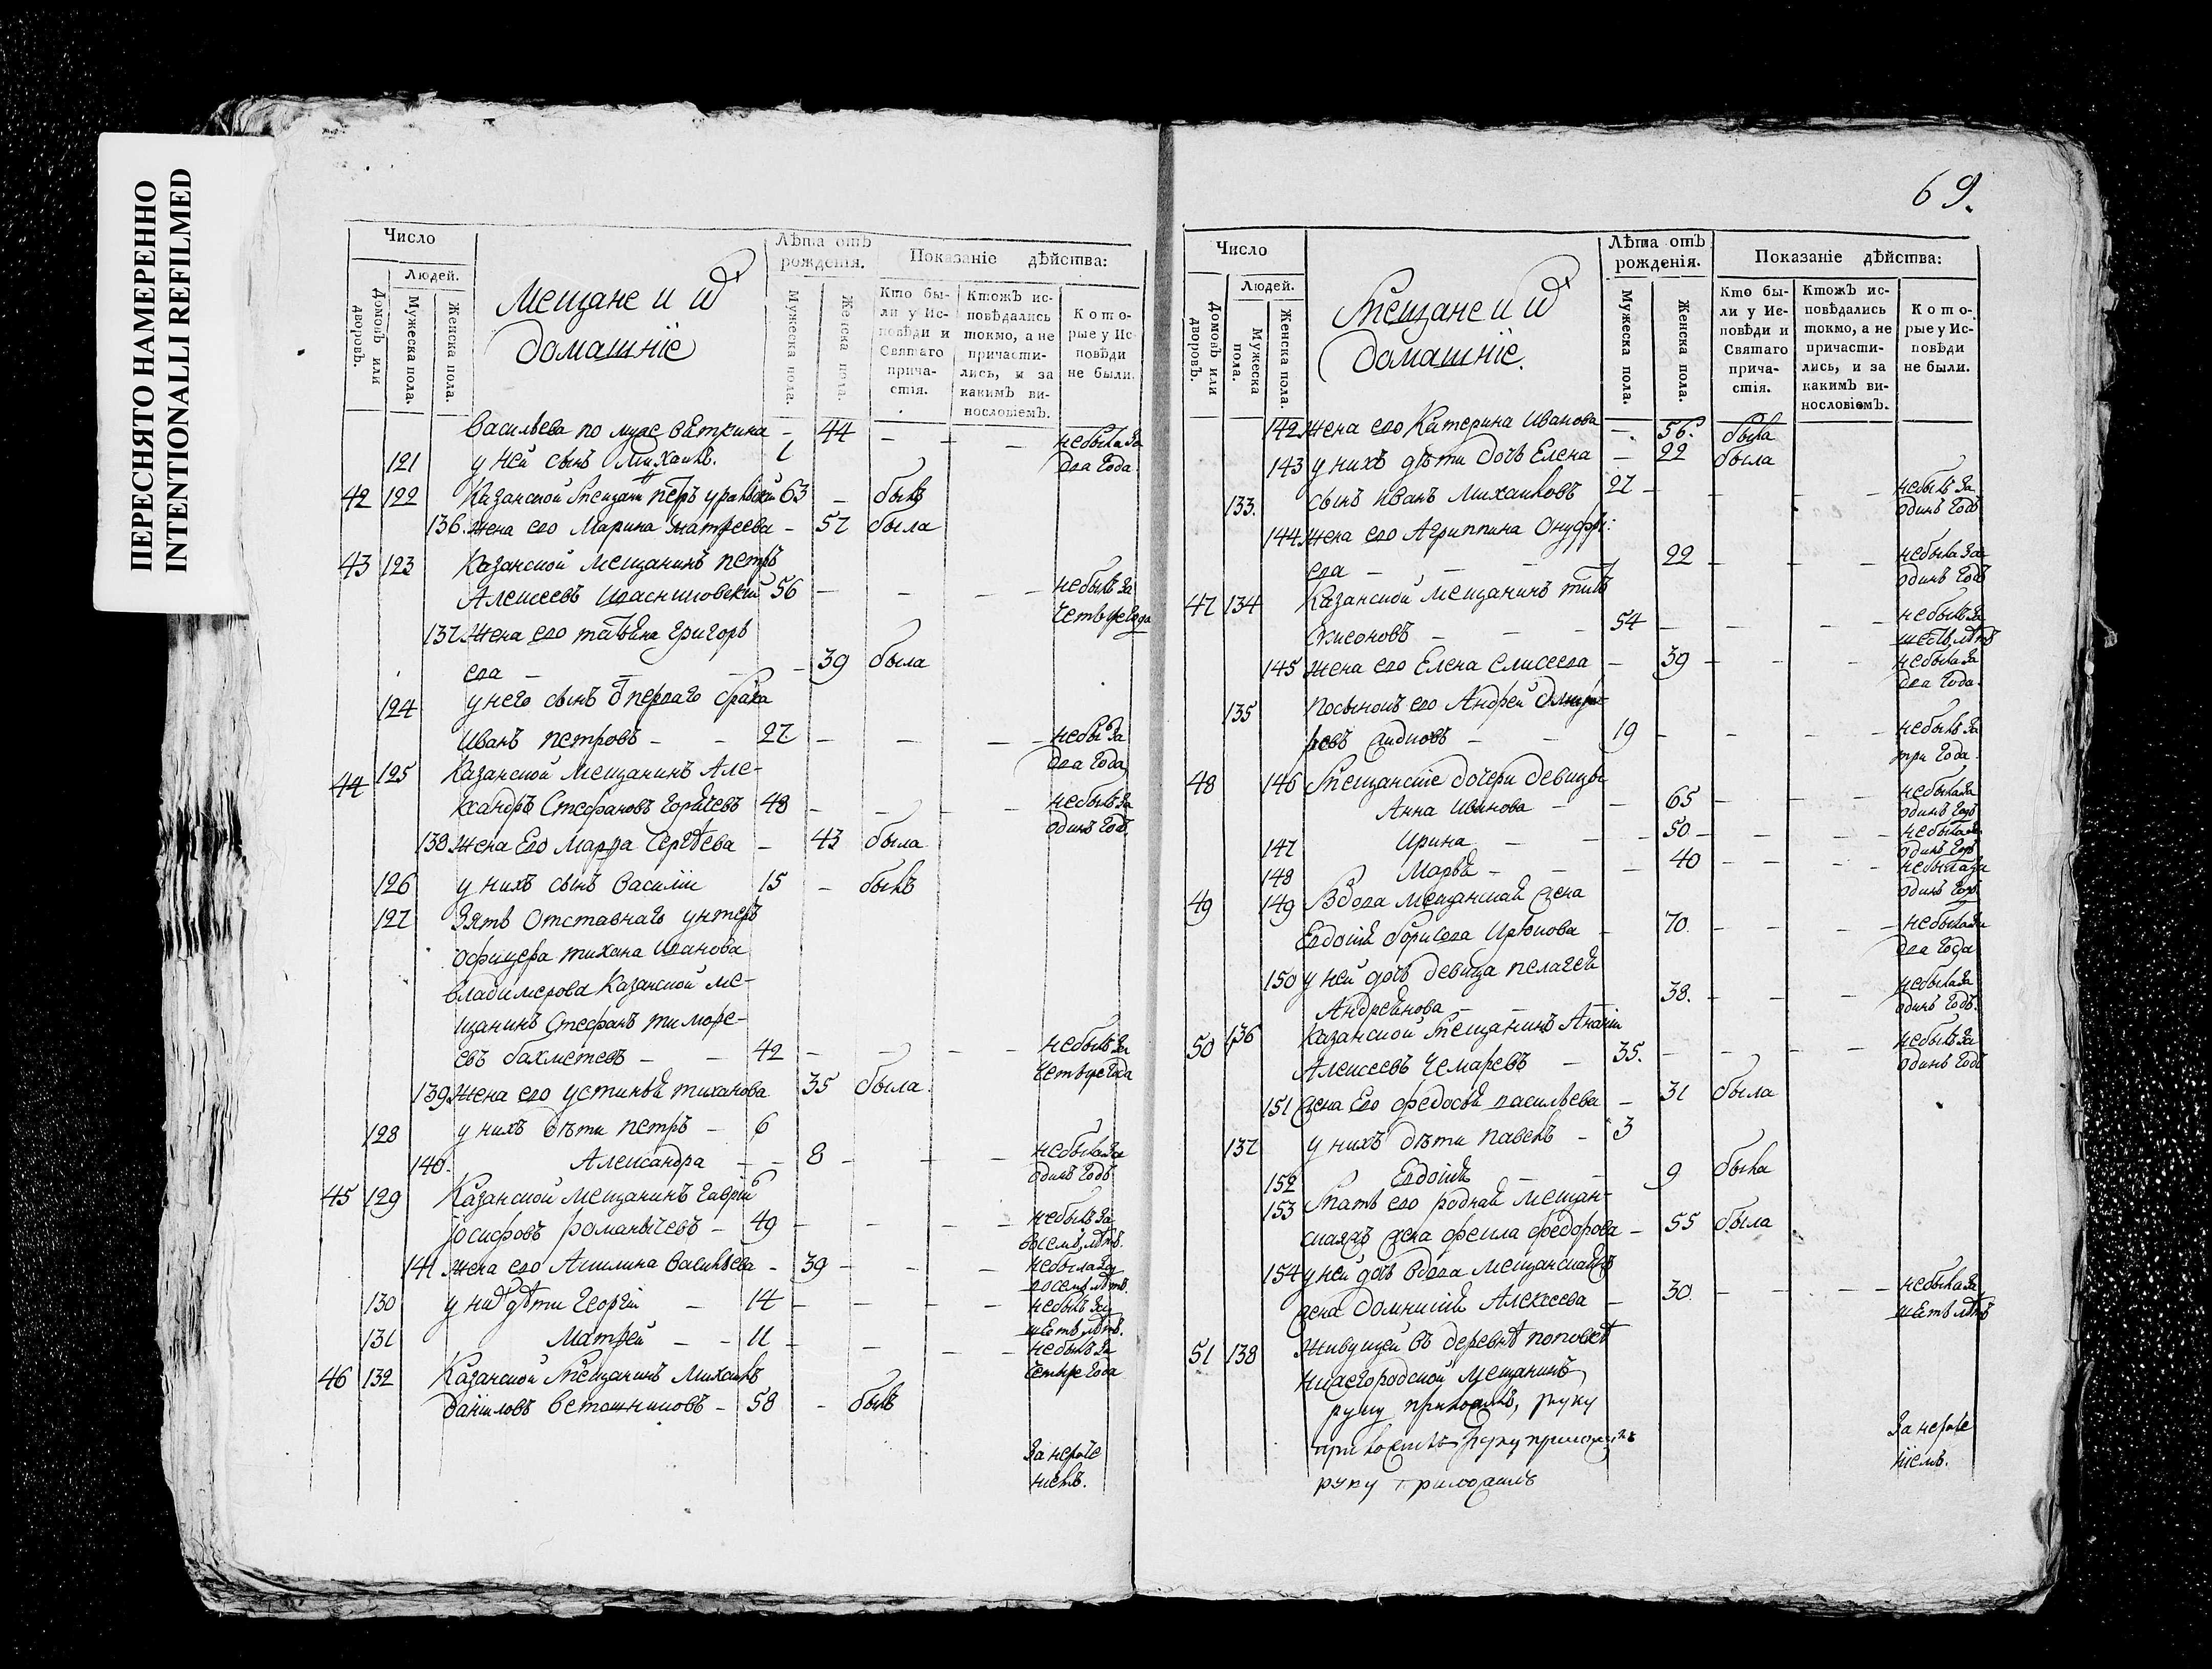 ПЕРЕСНЯТО НАМЕРЕННО
INTENTIONALLI REFILMED
Число
Людей.
Домовъ или дворовъ.
Мужеска пола.
Женска пола.
Мещане и ихъ
домашніе
Лѣта отъ рожденія.
Мужеска пола.
Женска пола.
Показаніе дѣйства:
Кто бы-
ли у Ис-
повѣди и
Святаго
прича-
стія.
Ктожъ ис-
повѣдались
токмо, а не
причасти-
лись, и за
какимъ ви-
нословіемъ.
Кото-
рые у Ис-
повѣди
не были.
Васильева по муже Вяткина - 44 - - - небыла за
121 у ней сынъ Михаилъ. 1 два года
42 122 Казанской мещани Петръ 63 - былъ
136. жена его Марина Матфеева - 57 была
43 123 Казанской мещанинъ Петръ
Алексеевъ 56 - - - небылъ за
четыре года
137 жена его Татьяна Григорь
ева - - - 39 была
124 у него сынъ от перваго брака
Иванъ Петровъ - - 27. - - - небылъ за
два года
44 125 Казанской мещанинъ Але-
ксандръ Стефановъ 48 - - - небылъ за
138 жена Его Марфа Сергѣева - 43 была одинъ годъ.
126 у нихъ сынъ Василій 15 - былъ
127 Зять отставнаго унтеръ
офицера Тихана Иванова
Владимерова Казанской ме-
щанинъ Стефанъ Тимофе-
евъ Бахметевъ - - 42 - - - - небылъ за
четыре года
139 жена его Устинья Тиханова 35 была.
128 у нихъ дѣти Петръ - 6
140. Александра - - 8 - - - небыла за
одинъ годъ
45 129 Казанской мещанинъ Гаврiи
Іосифовъ Романычевъ - 49 - - - небылъ за
восемь лѣтъ.
141 жена его Акилина Васильева - 39 - - - небыла за
восемь лѣтъ.
130 у нихъ дѣти Георгій - 14 - - - - небылъ за
шесть лѣтъ.
131 Матфей - - 11 - - - - небылъ за
46 132 Казанской мещанинъ Михаилъ четыре года
Даниловъ Ветошниковъ - 58 - былъ
За нераде
ніемъ.
69.
Число
Людей.
Домовъ или дворовъ.
Мужеска пола.
Женска пола.
Мещане и ихъ
домашніе.
Лѣта отъ рожденія.
Мужеска пола.
Женска пола.
Показаніе дѣйства:
Кто бы-
ли у Ис-
повѣди и
Святаго
прича-
стія.
Ктожъ ис-
повѣдались
токмо, а не
причасти-
лись, и за
какимъ ви-
нословіемъ.
Кото-
рые у Ис-
повѣди
не были.
142 жена его Катерина Иванова - 56. была
143 у нихъ дѣти дочь Елена - 22 была
133. сынъ Иванъ Михаиловъ 27 - - - - небылъ за
одинъ годъ
144 жена его Агриппина Онуфрі:
ева - - - 22 - - небыла за
одинъ годъ
47 134 Казанской мещанинъ Титъ
- - - 54 - - - - небылъ за
шесть лѣтъ
145 жена его Елена Елисеева - 39 - - - небыла за
два года.
135 Посынокъ его Андрей
- - 19 - - - - небылъ за
три года.
48 146 Мещанскіе дочери девицы
Анна Иванова - - 65 - - - небыла за
одинъ годъ
147 Ирина - - - 50 - - - - небыла за
одинъ годъ
148 Марья - - - 40 - - - небыла за
одинъ годъ
49 149 Вдова мещанская жена
Евдокія Борисова - 70. - - - - небыла за
два года
150 у ней дочь девица Пелагея
Андреянова - - 38. - - - небыла за
одинъ годъ.
50 136 Казанской мещанинъ Ананіи
Алексеевъ Чемаревъ - 35. - - - - небылъ за
одинъ годъ
151 жена Его Федосья Васильева - 31 была
137 у нихъ дѣти Павелъ - 3
152 Евдокія - - 9 была
153 мать его родная мещан-
ская жена Фекла Федорова - 55 была
154 у ней дочь вдова мещанская
жена Домникія Алексеева - 30. - - - - небыла за
шесть лѣтъ
51 138 Живущей въ деревнѣ Поповкѣ
Нижегородской мещанинъ
руку приложилъ, руку
руку приложилъ
За нераде
ніемъ.